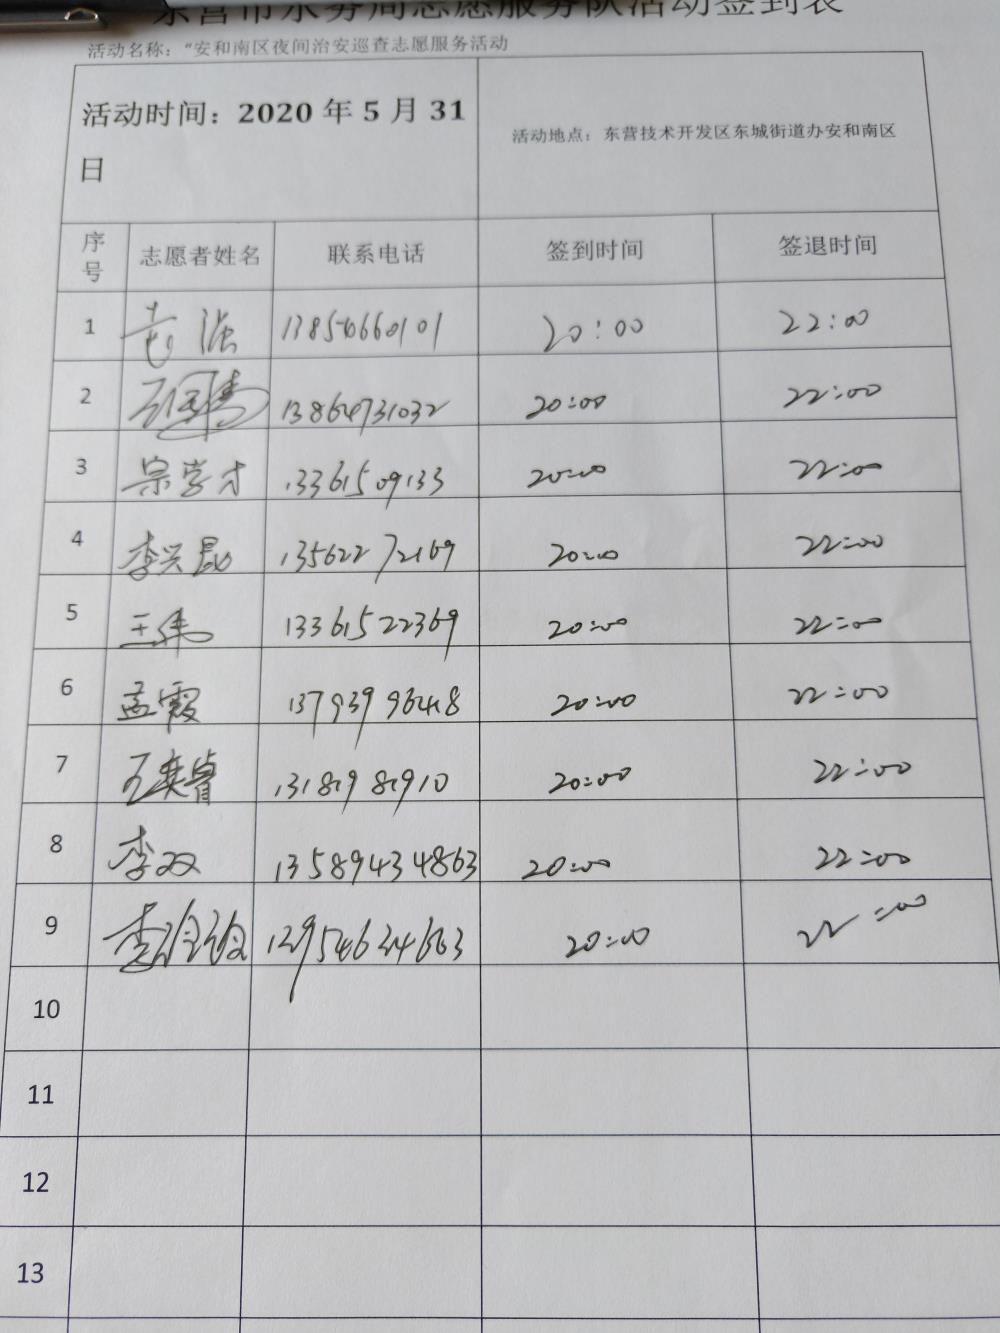 东营市水务局志愿服务队活动签到表
活动名称：“安和南区夜间治安巡查志愿服务活动
活动时间：2020 年 5 月 31 日
活动地点：东营技术开发区东城街道办安和南区
序号 志愿者姓名 联系电话 签到时间 签退时间
1 138546660101 20:00 22:00
2 13864731032 20:00 22:00
3 宗学才 13361509133 20:00 22:00
4 李兴昆 13562272169 20:00 22:00
5 王伟 13361522369 20:00 22:00
6 孟霞 13793996418 20:00 22:00
7 王奕睿 20:00 22:00
8 李双 13589434863 20:00 22:00
9 20:00 22:00
10
11
12
13